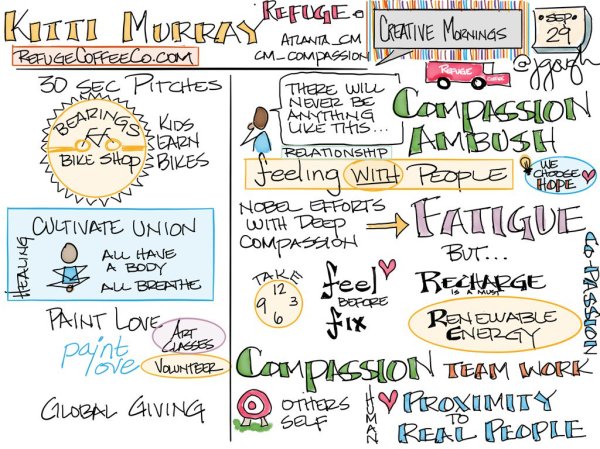 Kitti Murray
RefugeCoffeeCo.com
Refuge.
Atlanta_CM
CM_Compassion
Creative Mornings
Sep.
29
@jgough
Refuge
Coffee
30 Sec Pitches
Bearings
Bike Shop
Kids
Earn
Bikes
Healing
Cultivate Union
All Have
A Body
All Breathe
Paint Love
paint
love
Art
Classes
Volunteer
Global Giving
There Will
Never Be
Anything
Like This...
Compassion
Ambush
Relationship
feeling With People
We
Choose
Hope
Nobel Efforts
With Deep
Compassion
Fatigue
But...
Co-Passion
Take
12
9 3
6
feel
Before
fix
Recharge
is a must
Renewable
Energy
Compassion Team Work
Others
Self
Human
Proximity
to
Real People